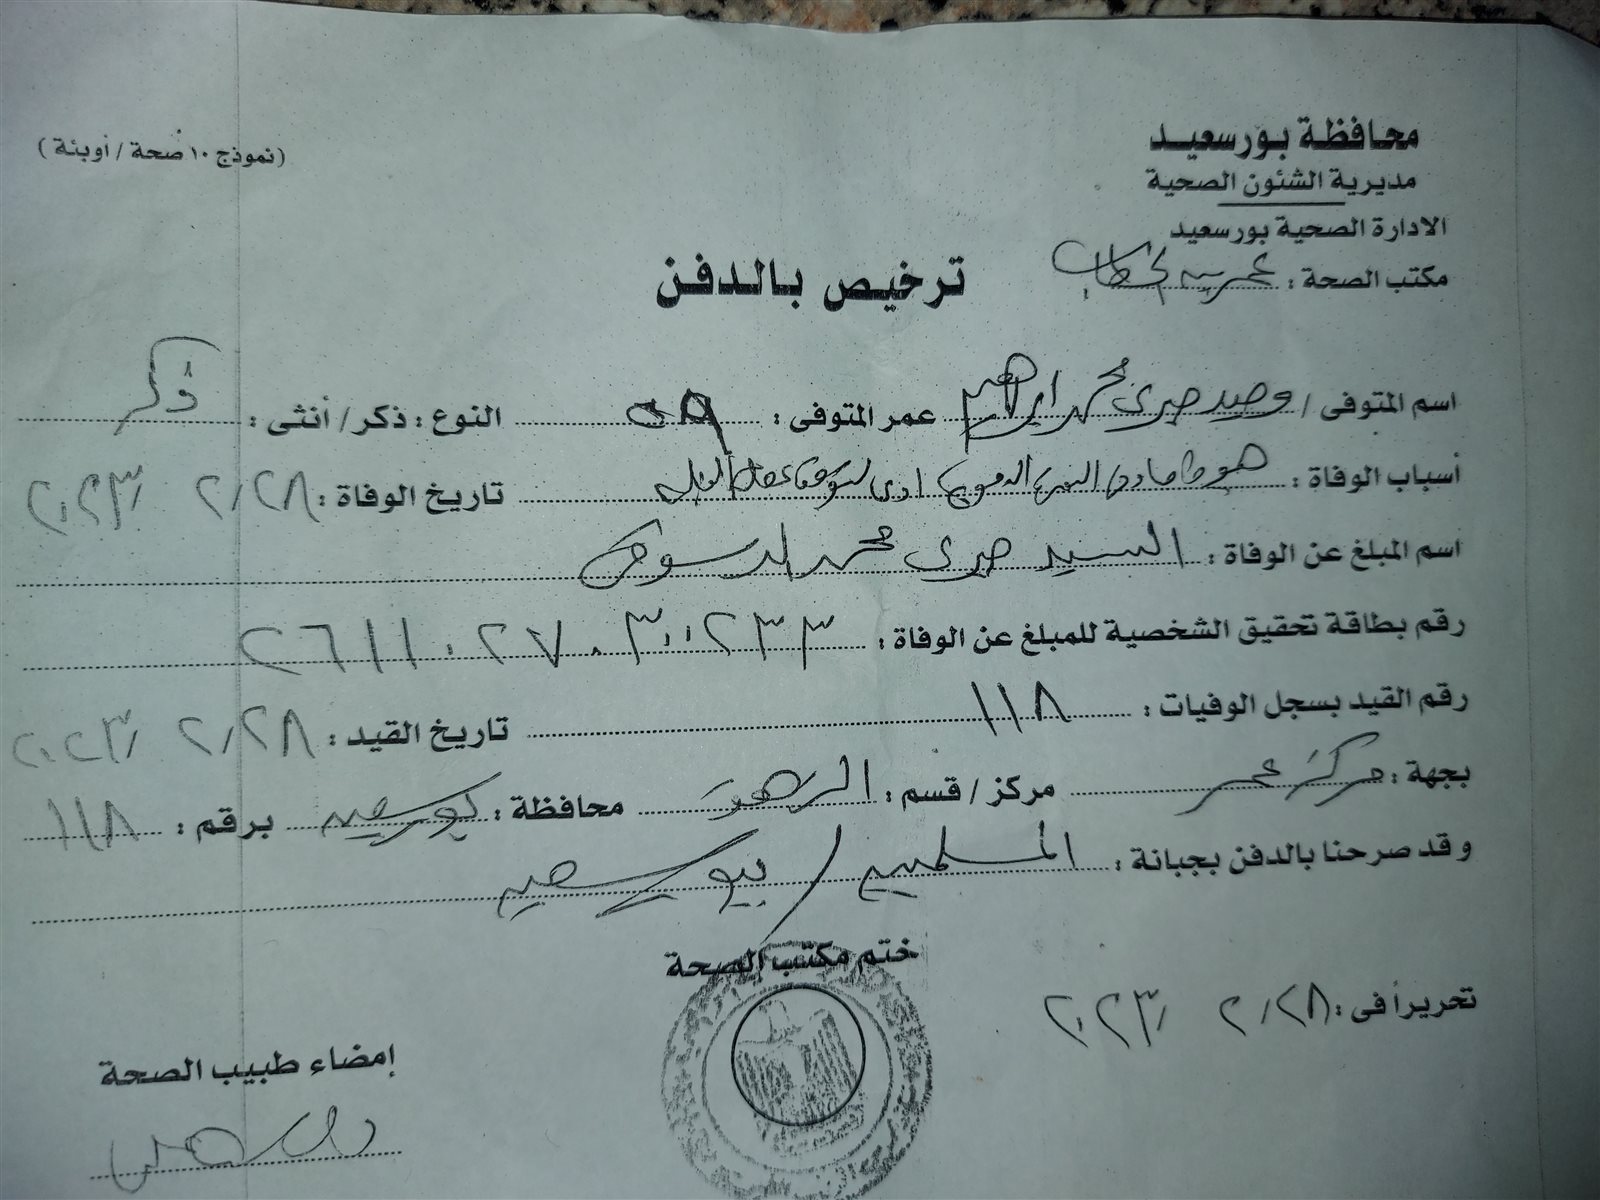 محافظة بورسعيد
مديرية الشئون الصحية
(نموذج ١٠ صحة / أوبئة)
الادارة الصحية بورسعيد
مكتب الصحة : عمر بن الخطاب
ترخيص بالدفن
اسم المتوفى / وحيد صبرى محمد ابراهيم عمر المتوفى : ٥٩ النوع : ذكر / أنثى : ذكر
أسباب الوفاة : هبوط حاد فى الدورة الدموية ادى لتوقف عضلة القلب تاريخ الوفاة : ٢/٢٨ /٢٠٢٣
اسم المبلغ عن الوفاة : السيد صبرى محمد الدسوقى
رقم بطاقة تحقيق الشخصية للمبلغ عن الوفاة : ٢٦١١٠٢٧٠٣٠٠٢٣٣
رقم القيد بسجل الوفيات : ١١٨ تاريخ القيد : ٢/٢٨ /٢٠٢٣
بجهة : مركز عمر مركز / قسم : الزهور محافظة : بورسعيد برقم : ١١٨
وقد صرحنا بالدفن بجبانة : المسلمين / ببورسعيد
ختم مكتب الصحة
تحريراً فى : ٢/٢٨ /٢٠٢٣
إمضاء طبيب الصحة